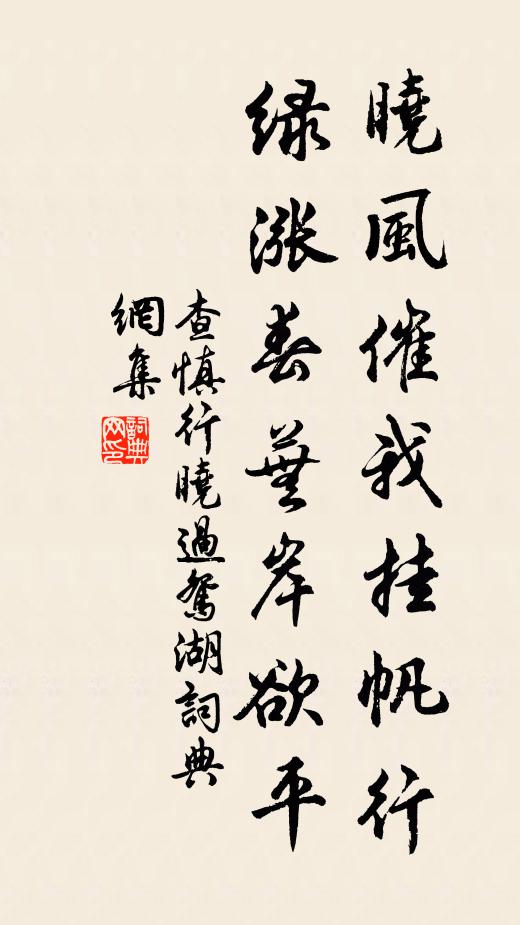 曉風催我挂帆行
绿漲春蕪岸欲平
查慎行曉過鴛湖詞典
網集
詞典
网印